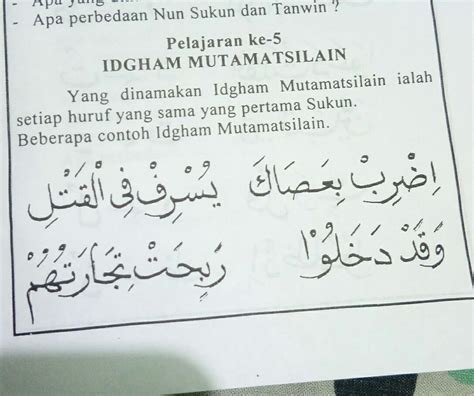 - Apa perbedaan Nun Sukun dan Tanwin ?
Pelajaran ke-5
IDGHAM MUTAMATSILAIN
Yang dinamakan Idgham Mutamatsilain ialah
setiap huruf yang sama yang pertama Sukun.
Beberapa contoh Idgham Mutamatsilain.
اِضْرِبْ بِعَصَاكَ يُسْرِفْ فِى الْقَتْلِ
وَقَدْ دَخَلُوْا رَبِحَتْ تِجَارَتُهُمْ